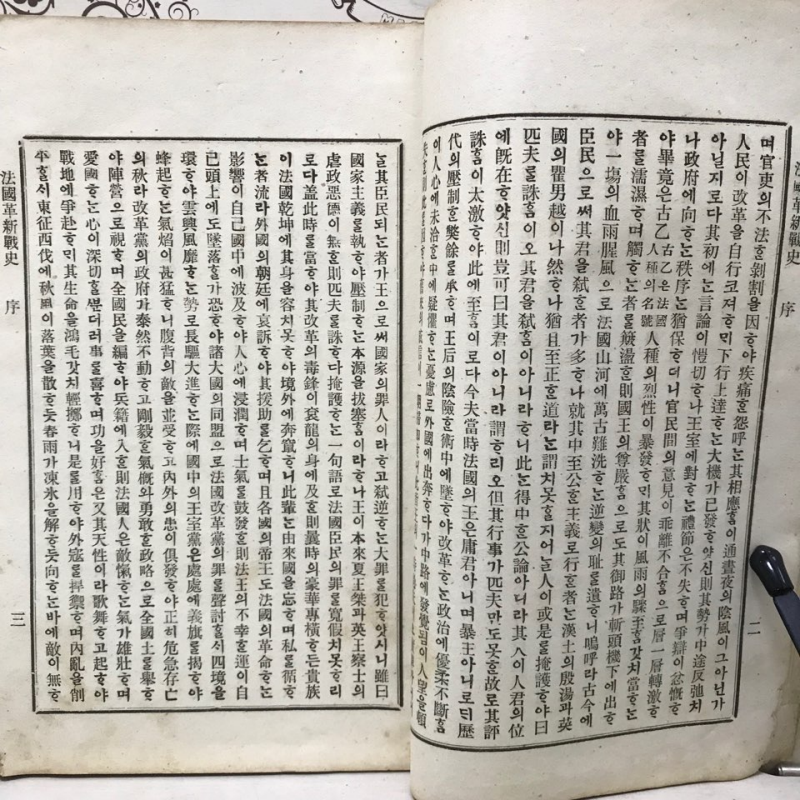 法國革新戰史 序 二
며官吏의不法ᄒᆞᆫ剝割을因ᄒᆞ야疾痛ᄒᆞᆫ怨呼ᄂᆞᆫ其相應ᄒᆞᆷ이通晝夜의陰風이그아닌가
人民이改革을自行코져ᄒᆞ미下行上達ᄒᆞᄂᆞᆫ大機가已發ᄒᆞ얏신則其勢가中途反弛치
아닐지로다其初에ᄂᆞᆫ言論이愷切ᄒᆞ나王室에對ᄒᆞᄂᆞᆫ禮節은不失ᄒᆞ며爭辯이忿慨ᄒᆞ
나政府에向ᄒᆞᄂᆞᆫ秩序ᄂᆞᆫ猶保ᄒᆞ더니官民間의意見이乖離不合ᄒᆞᆷ으로層一層轉激ᄒᆞ
야畢竟은古乙古乙은法國人種의名號人種의烈性이暴發ᄒᆞ미其狀이風雨의驟至ᄒᆞᆷ갓치當ᄒᆞᄂᆞᆫ
者를濡濕ᄒᆞ며觸ᄒᆞᄂᆞᆫ者를簸盪ᄒᆞᆫ則國王의尊嚴ᄒᆞᆷ으로도其御路가斬頭機下에出ᄒᆞ
야一場의血雨腥風으로法國山河에萬古難洗ᄒᆞᄂᆞᆫ逆變의耻를遺ᄒᆞ니嗚呼라古今에
臣民으로써其君을弑ᄒᆞᆫ者가多ᄒᆞ나就其中至公ᄒᆞᆫ主義로行ᄒᆞᆫ者ᄂᆞᆫ漢土의殷湯과英
國의瞿男越이나然ᄒᆞ나猶且至正ᄒᆞᆫ道라ᄂᆞᆫ謂치못ᄒᆞᆯ지어ᄂᆞᆯ人이或是를掩護ᄒᆞ야曰
匹夫를誅ᄒᆞᆷ이오其君을弑ᄒᆞᆷ이아니라ᄒᆞ니此ᄂᆞᆫ得中ᄒᆞᆫ公論아니라其人이人君의位
에既在ᄒᆞ얏신則豈可曰其君이아니라謂ᄒᆞ리오但其行事가匹夫만도못ᄒᆞᆫ故로其評
誅ᄒᆞᆷ이太激ᄒᆞ야此에至ᄒᆞᆷ이로다今夫當時法國의王은庸君아니며暴王아니로ᄃᆡ歷
代의壓制ᄒᆞᆫ獘餘를承ᄒᆞ며王后의陰險ᄒᆞᆫ術中에墜ᄒᆞ야改革ᄒᆞᄂᆞᆫ政治에優柔不斷ᄒᆞᆷ
이人心에未洽ᄒᆞᆫ中에疑懼ᄒᆞᄂᆞᆫ憂慮로外國에出奔ᄒᆞ다가中路에發覺됨이人望을頓
ᄂᆞᆯ其臣民되ᄂᆞᆫ者가王으로써國家의罪人이라ᄒᆞ고弑逆ᄒᆞᄂᆞᆫ大罪를犯ᄒᆞ얏시니雖曰
國家主義를執ᄒᆞ야壓制ᄒᆞᄂᆞᆫ本源을拔塞ᄒᆞᆷ이라ᄒᆞ나王이本來夏王桀과英王察士의
虐政惡德이無ᄒᆞᆫ則匹夫를誅ᄒᆞ다掩護ᄒᆞᄂᆞᆫ一句語로法國臣民의罪를寬假치못ᄒᆞ리
로다盖此時를當ᄒᆞ야其改革의毒鋒이袞龍의身에及ᄒᆞᆫ則曩時의豪華專橫ᄒᆞ든貴族
이法國乾坤에其身을容치못ᄒᆞ야境外에奔竄ᄒᆞ니此輩ᄂᆞᆫ由來國을忘ᄒᆞ며私를循ᄒᆞ
ᄂᆞᆫ者流라外國의朝廷에哀訴ᄒᆞ야其援助를乞ᄒᆞ며且各國의帝王도法國의革命ᄒᆞᄂᆞᆫ
影響이自己國中에波及ᄒᆞ야人心에浸潤ᄒᆞ며士氣를鼓發ᄒᆞᆫ則法王의不幸ᄒᆞᆫ運이自
己頭上에도墜落ᄒᆞᆯ가恐ᄒᆞ야諸大國의同盟으로法國改革ᄒᆞᄂᆞᆫ罪를聲討ᄒᆞᆯᄉᆡ四境을
環ᄒᆞ야雲興風靡ᄒᆞᄂᆞᆫ勢로長驅大進ᄒᆞᄂᆞᆫ際에國中의王室黨은處處에義旗를揭ᄒᆞ야
蜂起ᄒᆞᄂᆞᆫ氣焰이甚猛ᄒᆞ니腹背의敵을並受ᄒᆞ고內外의患이俱發ᄒᆞ야正히危急存亡
의秋라改革黨의政府가泰然不動ᄒᆞ고剛毅ᄒᆞᆫ氣槪와勇敢ᄒᆞᆫ政略으로全國土를擧ᄒᆞ
야陣營으로視ᄒᆞ며全國民을編ᄒᆞ야兵籍에入ᄒᆞᆫ則法國人은敵愾ᄒᆞᄂᆞᆫ氣가雄壯ᄒᆞ며
愛國ᄒᆞᄂᆞᆫ心이深切ᄒᆞᆯᄲᅮᆫ더러事를喜ᄒᆞ며功을好ᄒᆞᆷ은又其天性이라歌舞ᄒᆞ고起ᄒᆞ야
戰地에爭赴ᄒᆞ미其生命을鴻毛갓치輕擲ᄒᆞ니是를用ᄒᆞ야外寇를捍禦ᄒᆞ며內亂을削
平ᄒᆞᆯᄉᆡ東征西伐에秋風이落葉을散ᄒᆞᄂᆞᆫ듯春雨가凍氷을解ᄒᆞᄂᆞᆫ듯向ᄒᆞᄂᆞᆫ바에敵이無ᄒᆞ
法國革新戰史 序 三